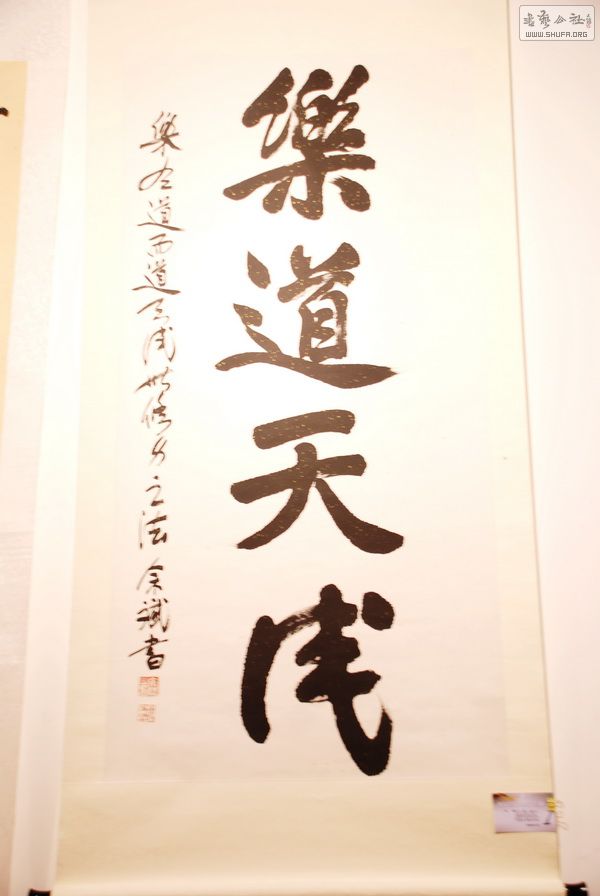 書藝公社
WWW.SHUFA.ORG
樂道天
樂在道而道天 修身之法 余斌書